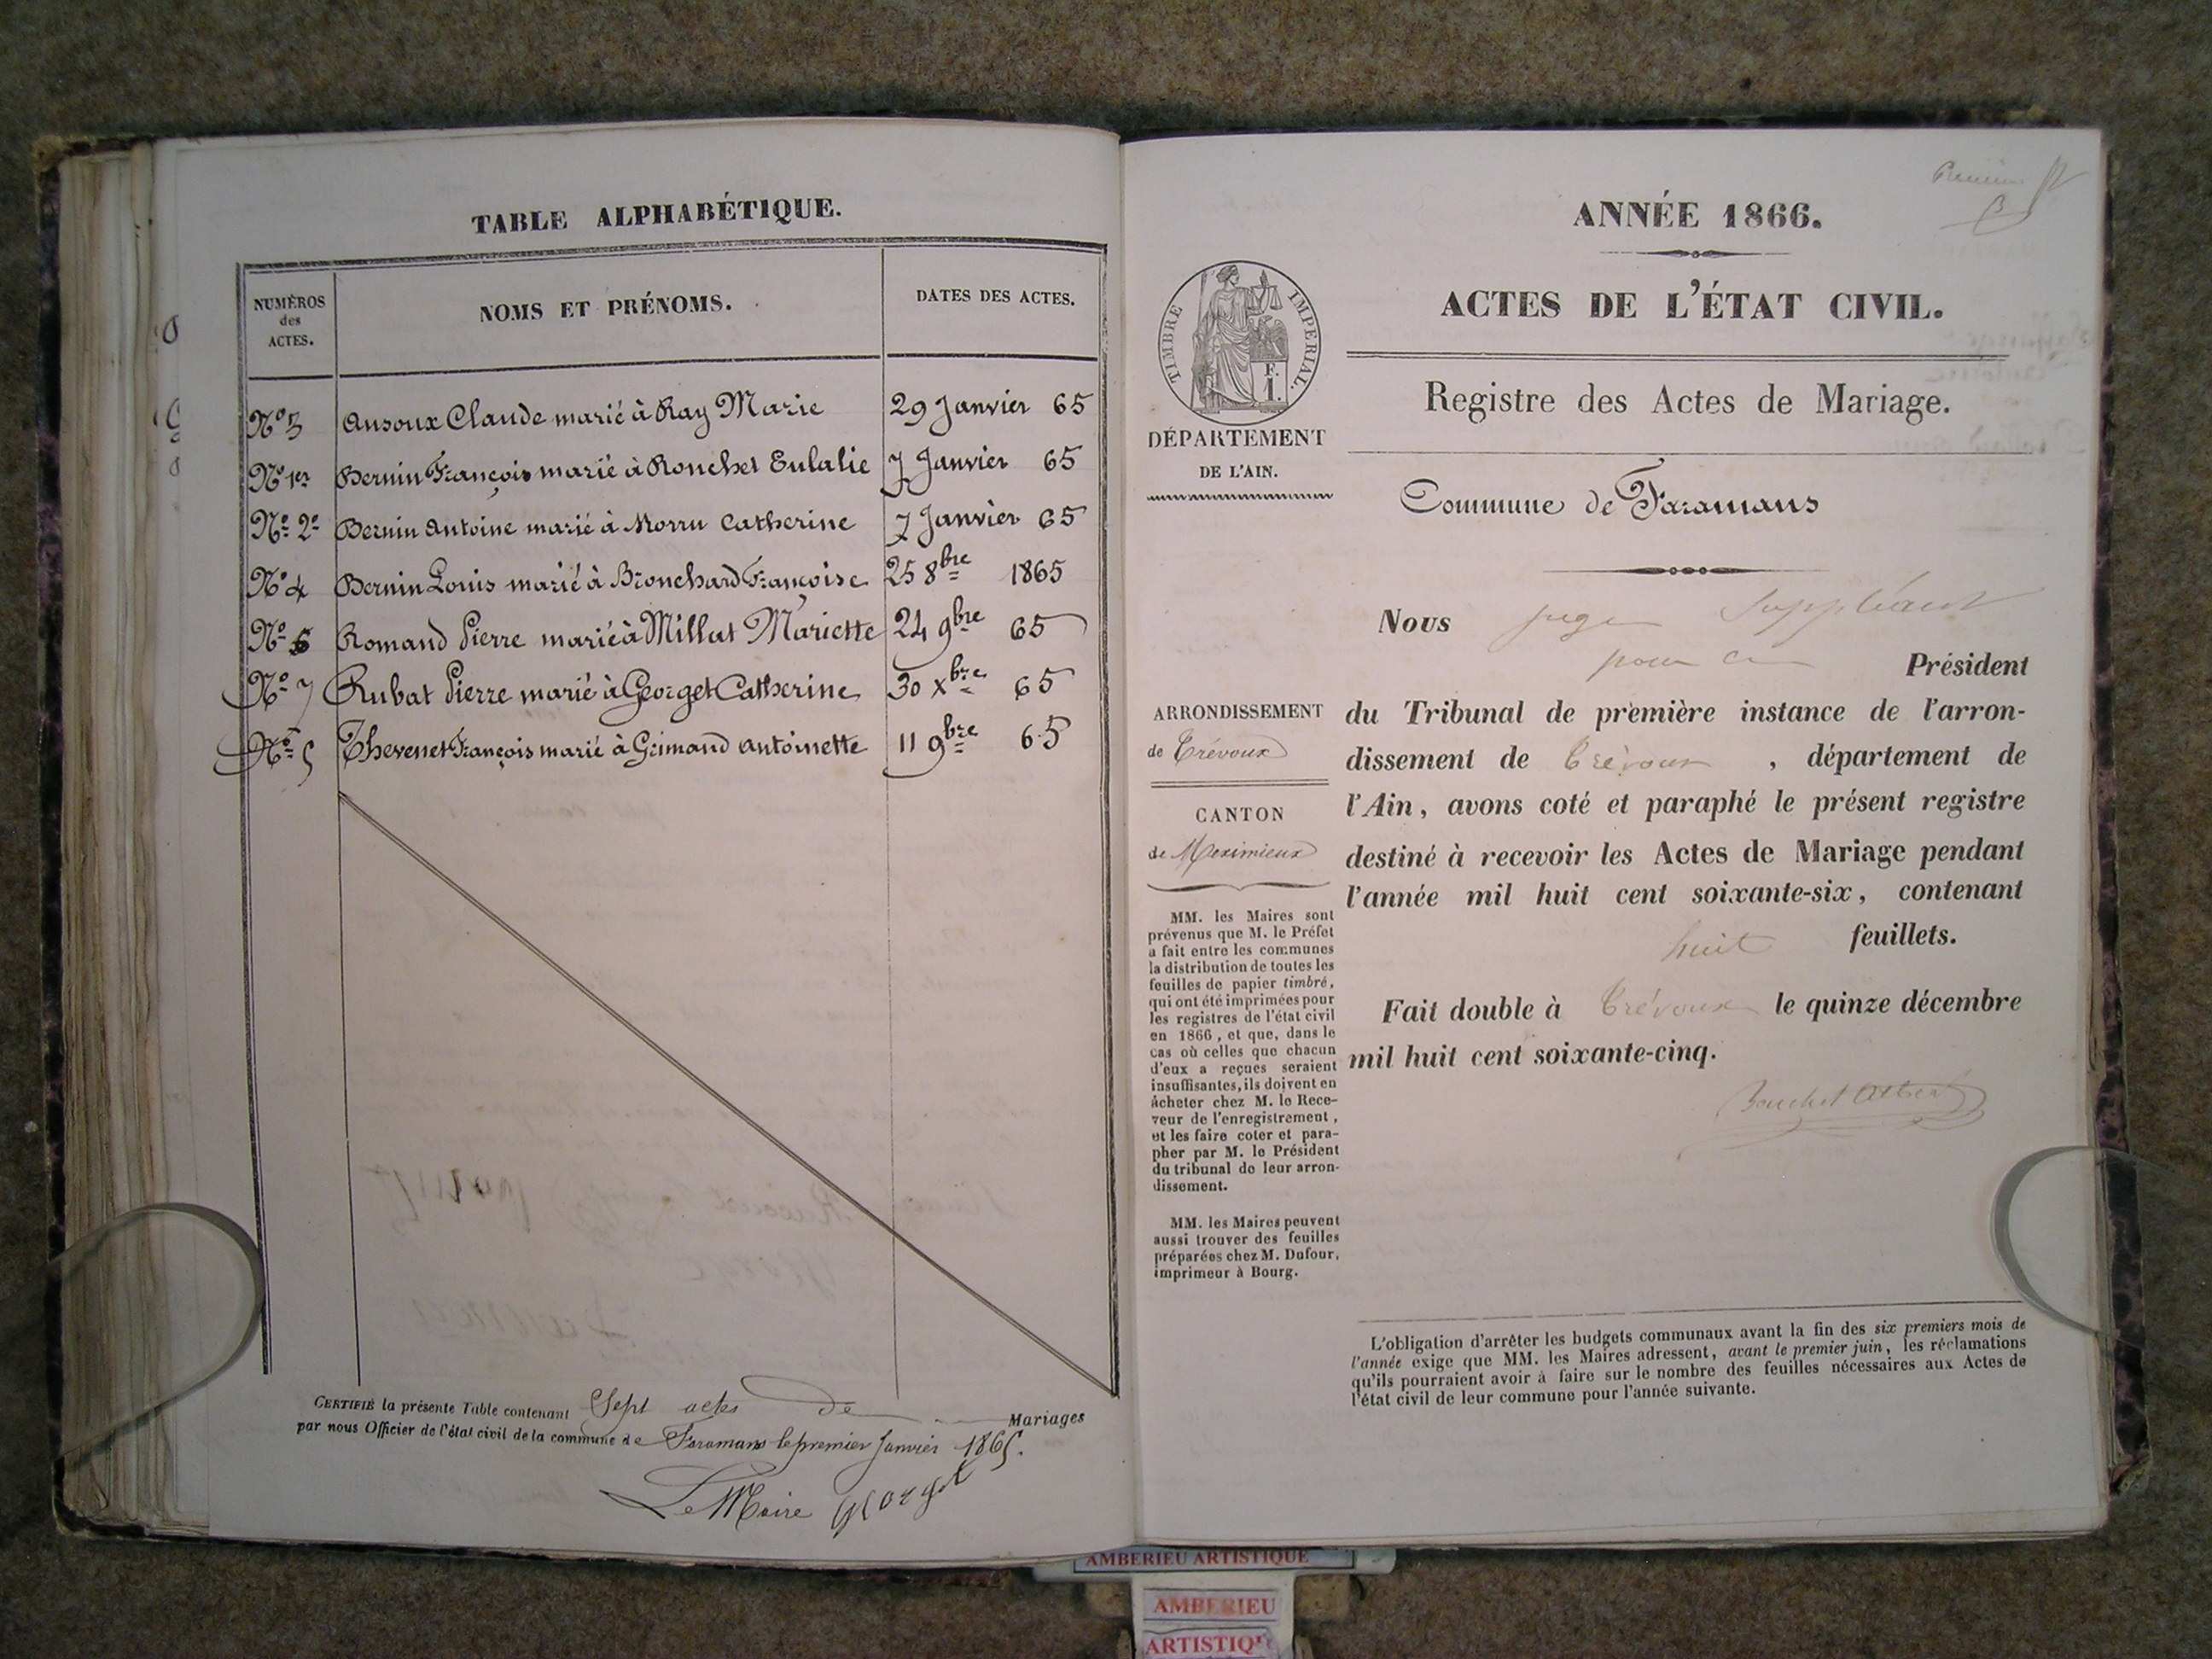 TABLE ALPHABÉTIQUE.
NUMÉROS
des
ACTES.
NOMS ET PRÉNOMS.
DATES DES ACTES.
Nº 3 Ansoux Claude marié à Ray Marie 29 Janvier 65
Nº 1er Bernin François marié à Ronchet Eulalie 7 Janvier 65
Nº 2e Bernin Antoine marié à Morru Catherine 7 Janvier 65
Nº 4 Bernin Louis marié à Bronchard Françoise 25 8bre 1865
Nº 6 Romand Pierre marié à Millat Mariette 24 9bre 65
Nº 7 Rubat Pierre marié à Georget Catherine 30 Xbre 65
Nº 5 Thevenet François marié à Grimand Antoinette 11 9bre 65
CERTIFIÉ la présente Table contenant Sept actes de Mariages
par nous Officier de l'état civil de la commune de Faramans le premier Janvier 1865.
Le Maire Georget
ANNÉE 1866.
ACTES DE L'ÉTAT CIVIL.
Registre des Actes de Mariage.
TIMBRE IMPÉRIAL.
F.
1.
DÉPARTEMENT
DE L'AIN.
Commune de Faramans
Nous juge suppléant
pour ce Président
du Tribunal de première instance de l'arron-
dissement de Trévoux , département de
l'Ain, avons coté et paraphé le présent registre
destiné à recevoir les Actes de Mariage pendant
l'année mil huit cent soixante-six, contenant
huit feuillets.
Fait double à Trévoux le quinze décembre
mil huit cent soixante-cinq.
ARRONDISSEMENT
de Trévoux
CANTON
de Meximieux
MM. les Maires sont
prévenus que M. le Préfet
a fait entre les communes
la distribution de toutes les
feuilles de papier timbré,
qui ont été imprimées pour
les registres de l'état civil
en 1866, et que, dans le
cas où celles que chacun
d'eux a reçues seraient
insuffisantes, ils doivent en
acheter chez M. le Rece-
veur de l'enregistrement,
et les faire coter et para-
pher par M. le Président
du tribunal de leur arron-
dissement.
MM. les Maires peuvent
aussi trouver des feuilles
préparées chez M. Dufour,
imprimeur à Bourg.
L'obligation d'arrêter les budgets communaux avant la fin des six premiers mois de
l'année exige que MM. les Maires adressent, avant le premier juin, les réclamations
qu'ils pourraient avoir à faire sur le nombre des feuilles nécessaires aux Actes de
l'état civil de leur commune pour l'année suivante.
AMBERIEU ARTISTIQUE
AMBERIEU
ARTISTIQUE